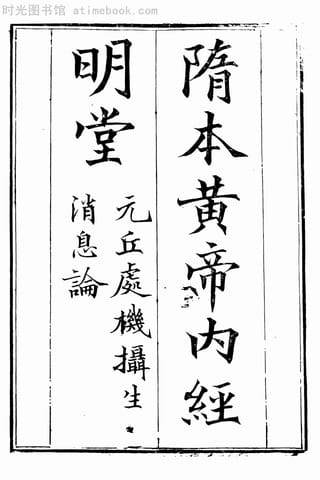 时光图书馆 - atimebook.com
隋本黄帝内經
明堂
元丘處機攝生
消息論